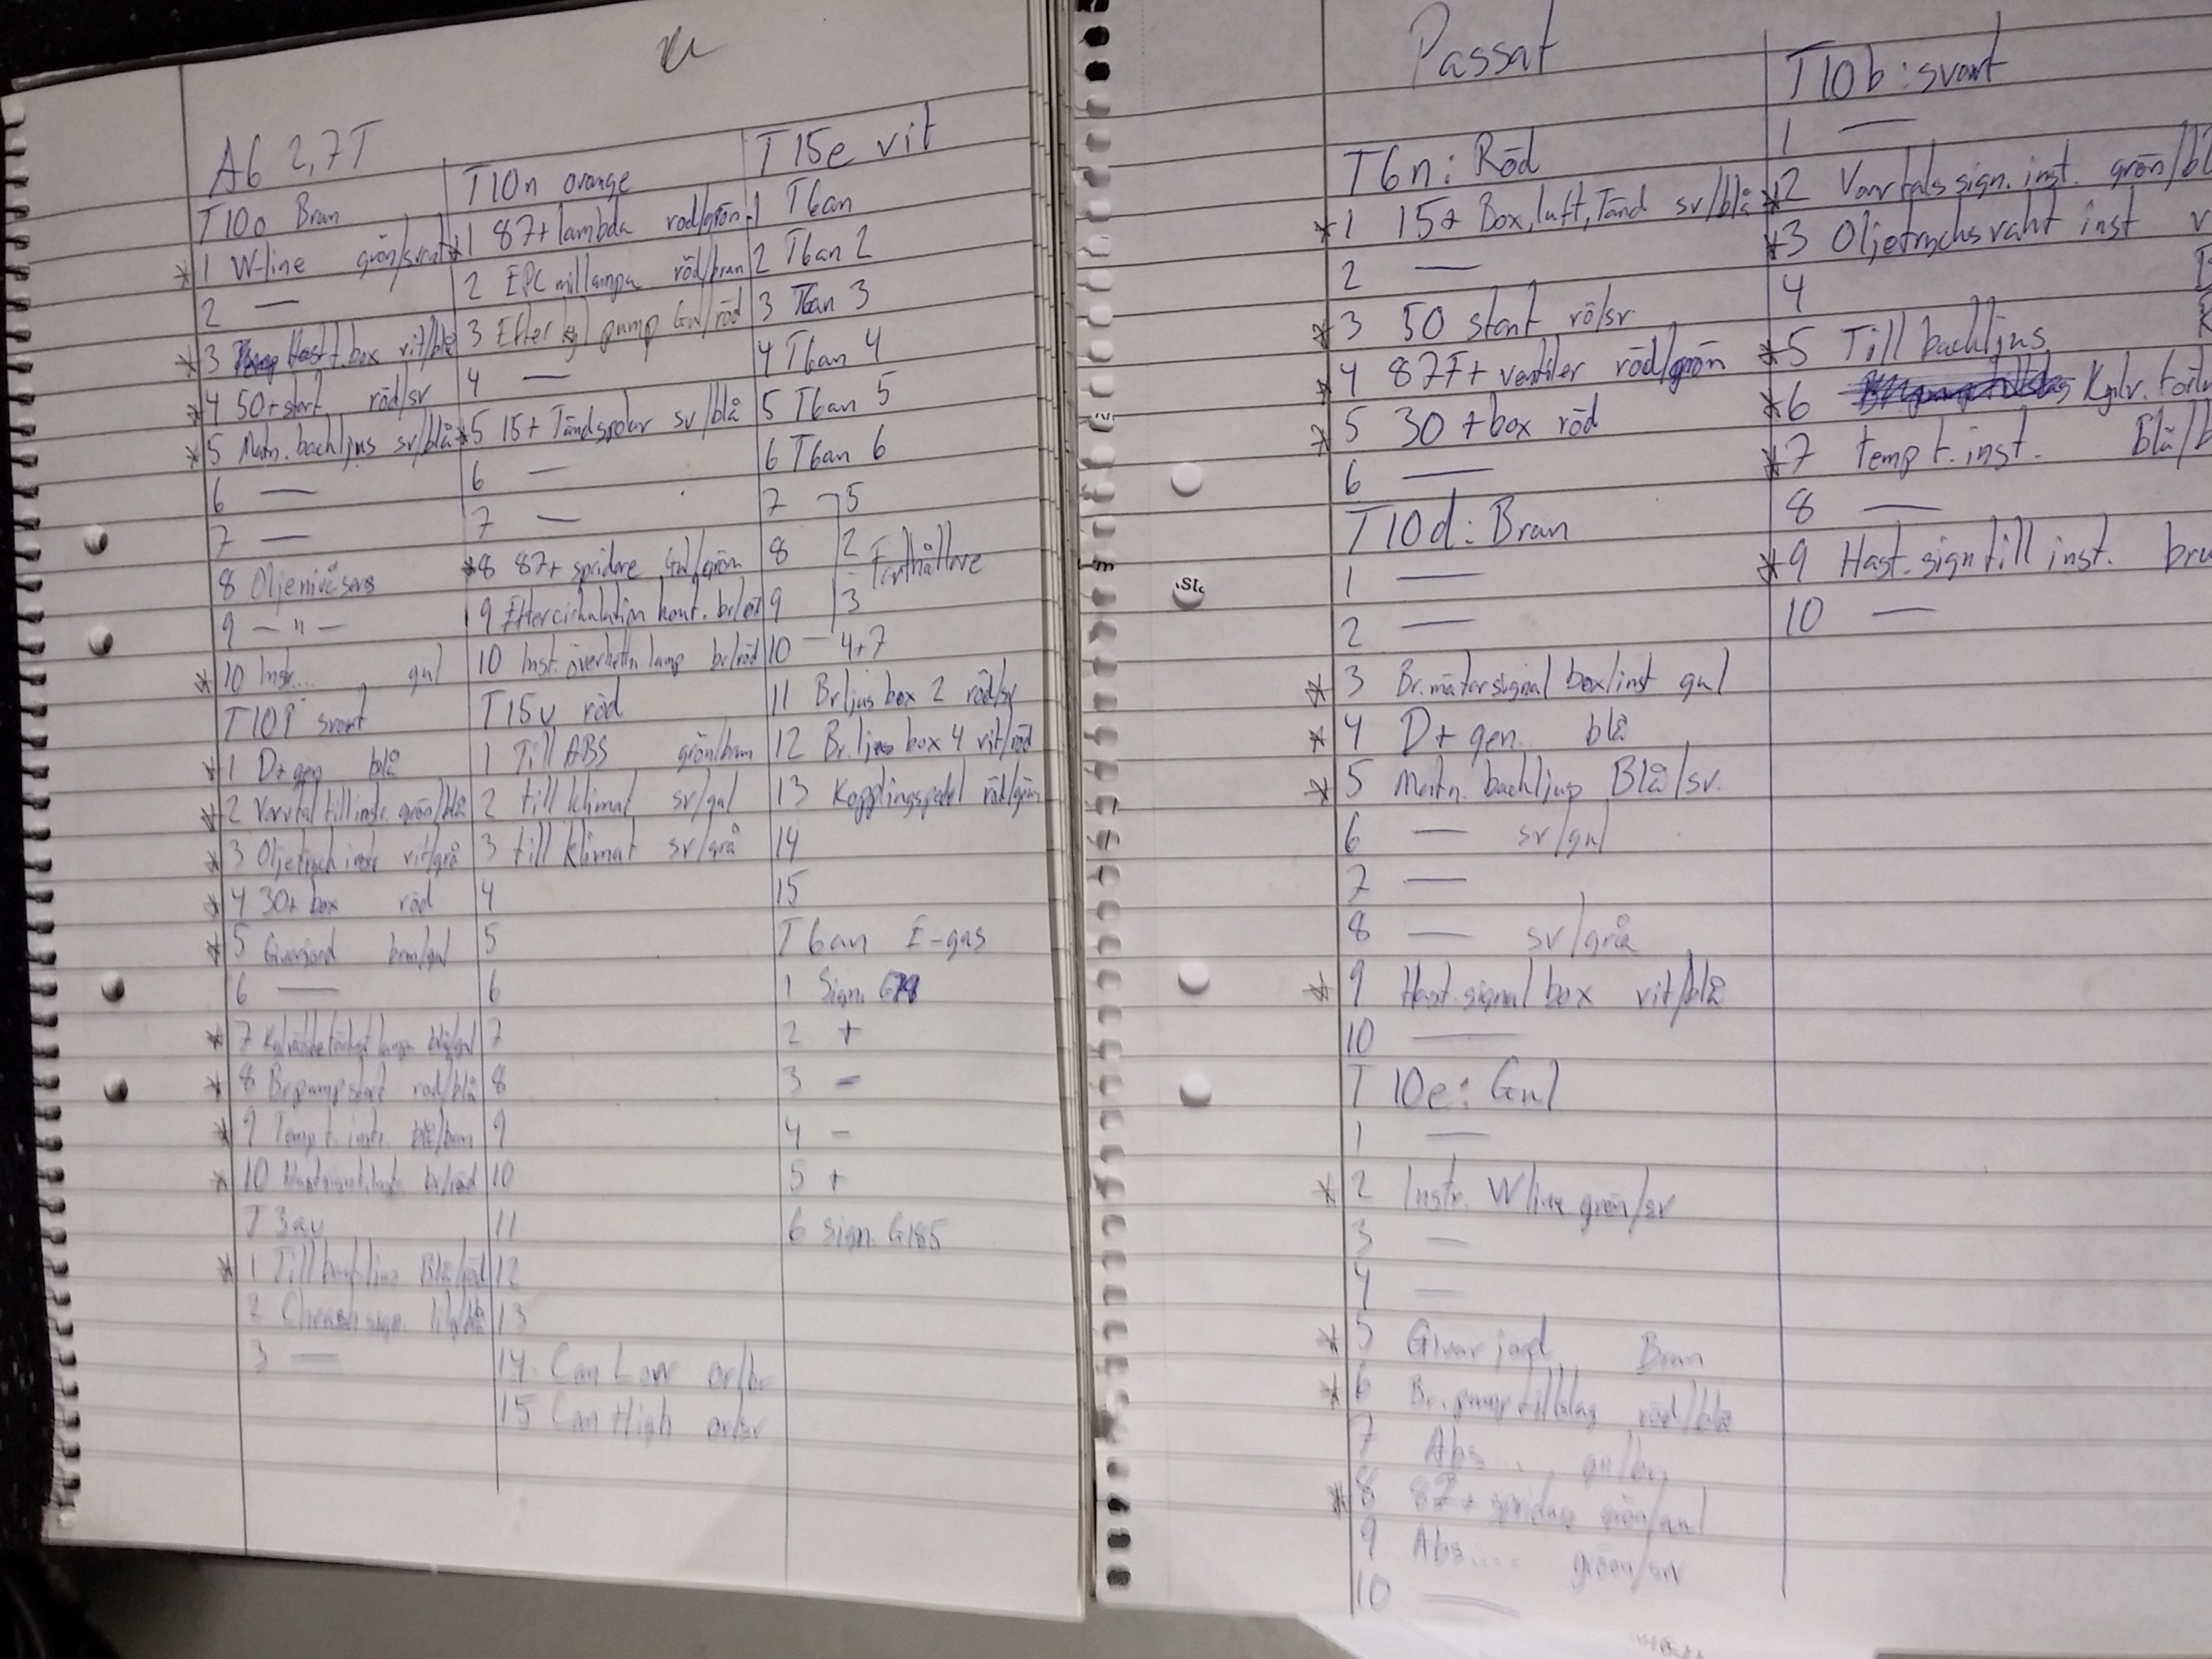 A6 2,7T
T10o Brun
*1 W-line grön/svart
2 —
*3 Hast t. box vit/blå
*4 50+ start röd/sv
*5 Matn. backljus sv/blå
6 —
7 —
8 Oljenivåsens
9 — " —
*10 Instr... gul
T10P svart
*1 D+ gen blå
*2 Varvtal till instr. grön/blå
*3 Oljetryck instr vit/grå
*4 30+ box röd
*5 Givarjord brun/gul
6 —
*7 lampa blå/gul
*8 Br.pump start röd/blå
*9 Temp t. instr. blå/brun
*10 br/röd
T3au
*1 Till backljus Blå/röd
2 Chrash sign.
3 —
T10n orange
*1 87+ lambda röd/grön
2 EPC mil lampa röd/brun
3 Efter kyl pump Gul/röd
4 —
*5 15+ Tändspolar sv/blå
6 —
7 —
*8 87+ spridare Gul/grön
9 Eftercirkulation kont.
10 Inst. överhettn lamp br/röd
T15u röd
1 Till ABS grön/brun
2 till klimat sv/gul
3 till klimat sv/grå
4
5
6
7
8
9
10
11
12
13
14 Can Low or/br
15 Can High or/sv
T15e vit
1 T6an
2 T6an 2
3 T6an 3
4 T6an 4
5 T6an 5
6 T6an 6
7 5
8 2 Farthållare
9 3
10 — 4+7
11 Br ljus box 2 röd/sv
12 Br. ljus box 4 vit/röd
13 Kopplingspedal röd/grön
14
15
T6an E-gas
1 Sign. G79
2 +
3 —
4 —
5 +
6 Sign. G185
Passat
T6n: Röd
*1 15+ Box, luft, Tänd sv/blå
2 —
*3 50 start rö/sv
*4 87F+ ventiler röd/grön
*5 30 + box röd
6 —
T10d: Brun
1 —
2 —
*3 Br.mätarsignal box/inst gul
*4 D+ gen. blå
*5 Matn. backljus Blå/sv.
6 — sv/gul
7 —
8 — sv/grå
*9 Hast. signal box vit/blå
10 —
T10e: Gul
1 —
*2 Instr. W line grön/sv
3 —
4 —
*5 Givarjord Brun
*6 Br. pump tillslag röd/blå
7 Abs... gul/br
*8 87+ spridare grön/gul
9 Abs.... grön/sv
10 —
T10b: svart
1 —
*2 Varvtalssign. inst. grön/bl
*3 Oljetrycksvakt inst v
4
*5 Till backljus
*6 Kylv.
*7 Temp t. inst. Blå/b
8 —
*9 Hast. sign till inst. bru
10 —